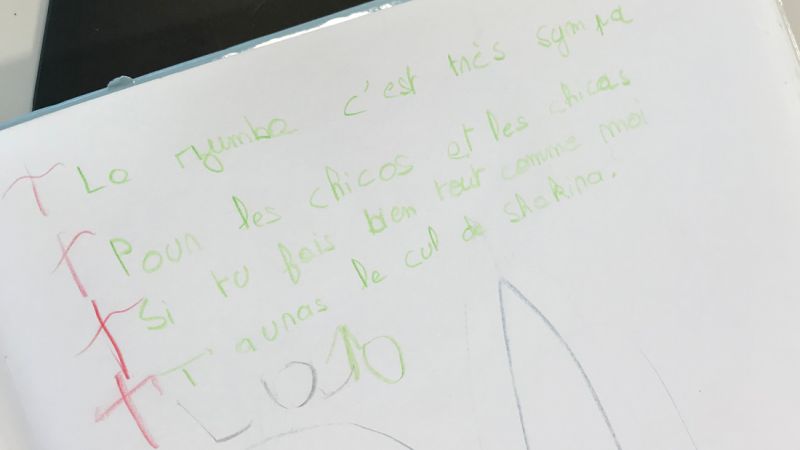 La rumba c'est très sympa
Pour les chicos et les chicas
Si tu fais bien tout comme moi
T'auras le cul de shakira!
LOLO